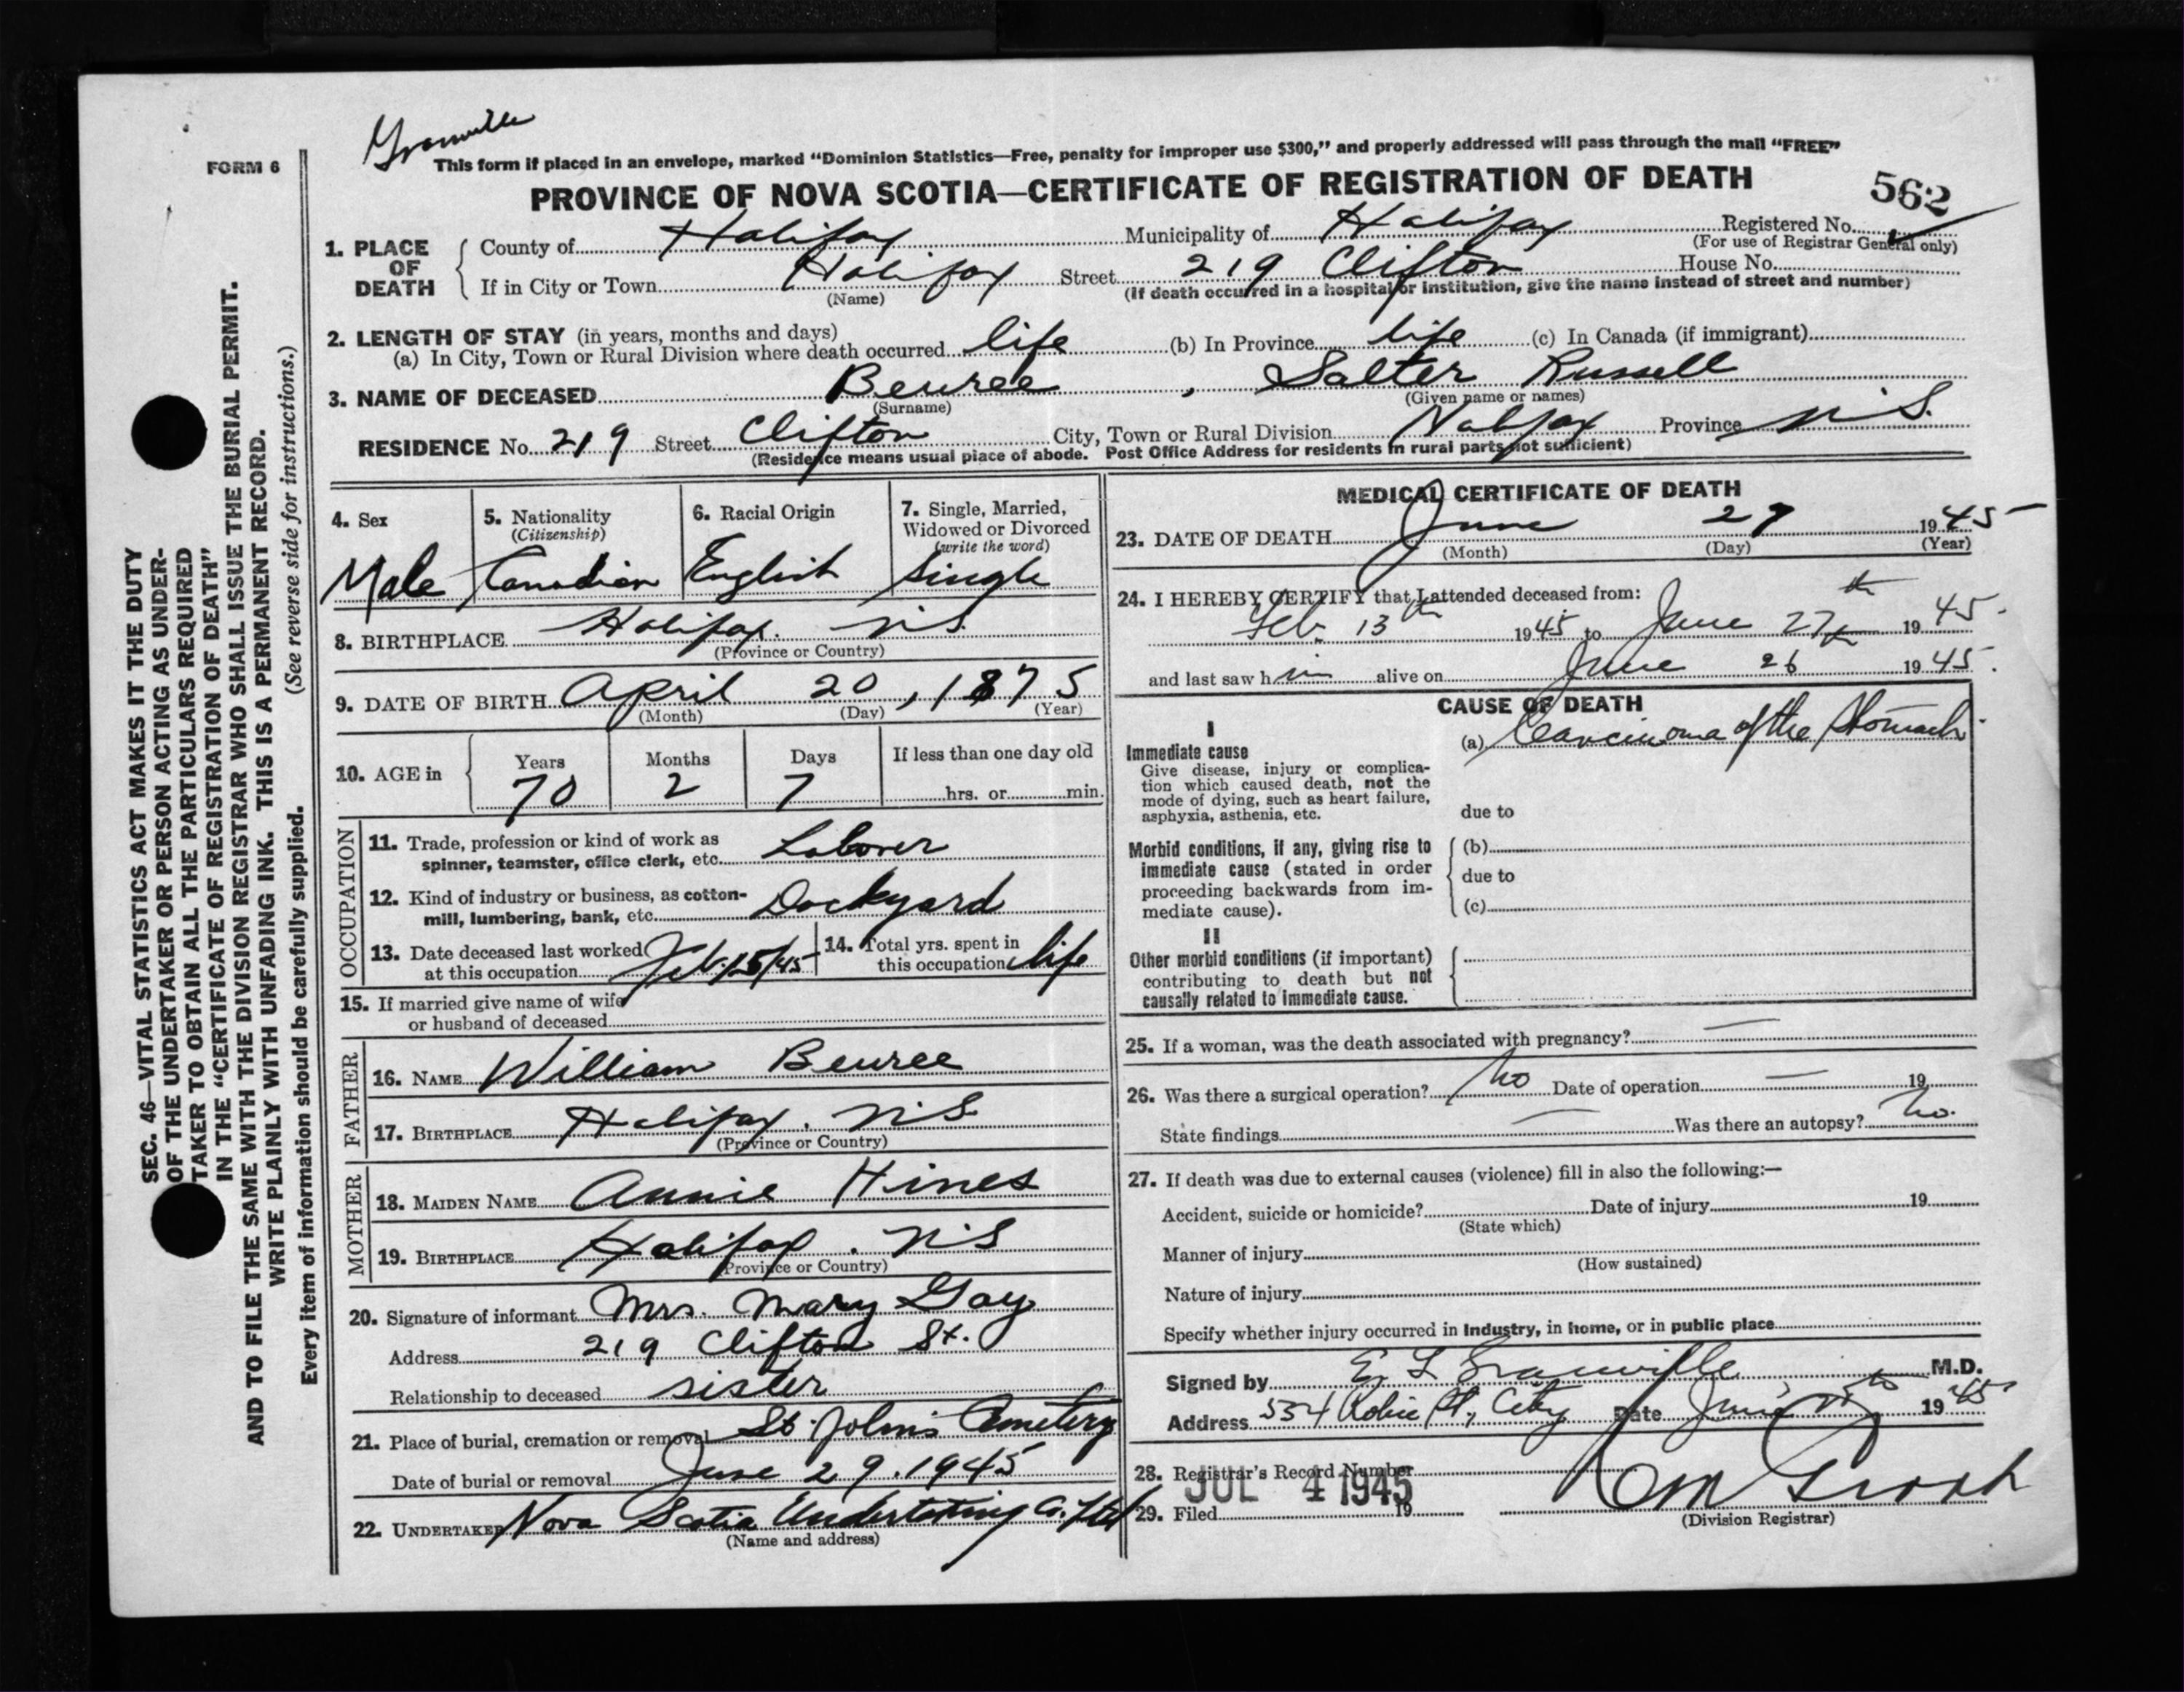 Granville
FORM 6
This form if placed in an envelope, marked “Dominion Statistics—Free, penalty for improper use $300,” and properly addressed will pass through the mail “FREE”
PROVINCE OF NOVA SCOTIA—CERTIFICATE OF REGISTRATION OF DEATH
562
1. PLACE OF DEATH
County of Halifax Municipality of Halifax Registered No.
(For use of Registrar General only)
If in City or Town Halifax Street 219 Clifton House No.
(Name) (If death occurred in a hospital or institution, give the name instead of street and number)
2. LENGTH OF STAY (in years, months and days)
(a) In City, Town or Rural Division where death occurred life (b) In Province life (c) In Canada (if immigrant)
3. NAME OF DECEASED Beuree, Salter Russell
(Surname) (Given name or names)
RESIDENCE No. 219 Street Clifton City, Town or Rural Division Halifax Province N.S.
(Residence means usual place of abode. Post Office Address for residents in rural parts not sufficient)
SEC. 46—VITAL STATISTICS ACT MAKES IT THE DUTY
OF THE UNDERTAKER OR PERSON ACTING AS UNDER-
TAKER TO OBTAIN ALL THE PARTICULARS REQUIRED
IN THE “CERTIFICATE OF REGISTRATION OF DEATH”
AND TO FILE THE SAME WITH THE DIVISION REGISTRAR WHO SHALL ISSUE THE BURIAL PERMIT.
WRITE PLAINLY WITH UNFADING INK. THIS IS A PERMANENT RECORD.
(See reverse side for instructions.)
Every item of information should be carefully supplied.
4. Sex
Male
5. Nationality
(Citizenship)
Canadian
6. Racial Origin
English
7. Single, Married,
Widowed or Divorced
(write the word)
Single
8. BIRTHPLACE Halifax. N.S.
(Province or Country)
9. DATE OF BIRTH April 20, 1875
(Month) (Day) (Year)
10. AGE in
Years Months Days If less than one day old
70 2 7 hrs. or min.
OCCUPATION
11. Trade, profession or kind of work as
spinner, teamster, office clerk, etc. Laborer
12. Kind of industry or business, as cotton-
mill, lumbering, bank, etc. Dockyard
13. Date deceased last worked
at this occupation Feb. 15/45
14. Total yrs. spent in
this occupation life
15. If married give name of wife
or husband of deceased
FATHER
16. NAME William Beuree
17. BIRTHPLACE Halifax. N.S.
(Province or Country)
MOTHER
18. MAIDEN NAME Annie Hines
19. BIRTHPLACE Halifax. N.S
(Province or Country)
20. Signature of informant Mrs. Mary Gay
Address 219 Clifton St.
Relationship to deceased sister
21. Place of burial, cremation or removal St. John's Cemetery
Date of burial or removal June 29, 1945
22. UNDERTAKER Nova Scotia Undertaking Co. Ltd
(Name and address)
MEDICAL CERTIFICATE OF DEATH
23. DATE OF DEATH June 27 1945
(Month) (Day) (Year)
24. I HEREBY CERTIFY that I attended deceased from:
Feb. 13th 1945 to June 27th 1945.
and last saw him alive on June 26 1945.
CAUSE OF DEATH
I
Immediate cause
Give disease, injury or complica-
tion which caused death, not the
mode of dying, such as heart failure,
asphyxia, asthenia, etc.
(a) Carcinoma of the Stomach.
due to
Morbid conditions, if any, giving rise to
immediate cause (stated in order
proceeding backwards from im-
mediate cause).
(b)
due to
(c)
II
Other morbid conditions (if important)
contributing to death but not
causally related to immediate cause.
25. If a woman, was the death associated with pregnancy? —
26. Was there a surgical operation? No Date of operation — 19
State findings — Was there an autopsy? No.
27. If death was due to external causes (violence) fill in also the following:—
Accident, suicide or homicide? Date of injury 19
(State which)
Manner of injury
(How sustained)
Nature of injury
Specify whether injury occurred in Industry, in home, or in public place
Signed by E L Granville M.D.
Address 554 Robie St, City Date June 1945
28. Registrar's Record Number
29. Filed JUL 4 1945 19
(Division Registrar)